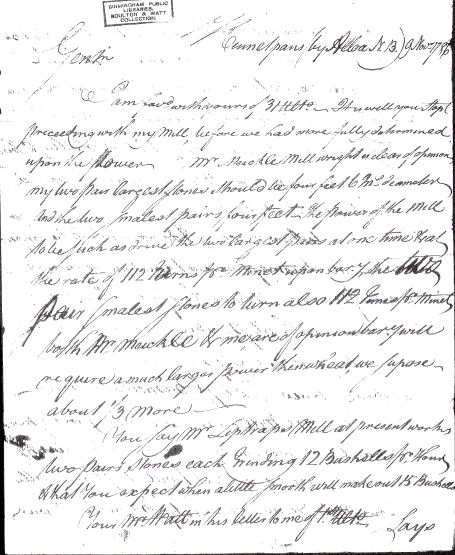 BIRMINGHAM PUBLIC
LIBRARIES
BOULTON & WATT
COLLECTION.
Kennetpans (by Alloa N.B.) 9 Nov. 1786
Gentn
I am favd with yours of 31 Ulto. It is well you stopd
proceeding with my Mill, before we had more fully determined
upon the Power Mr. Meickle Millwright is clear of opinion
my two pair largest stones should be four feet 6 Ins. diameter
and the two smalest pairs four feet. The power of the Mill
to be such as drive the two largest pairs at one time & at
the rate of 112 turns pr. Minet upon barly, the two
pair smalest stones to turn also 112 times pr. Minet
both Mr Meickle & me are of opinion barly will
require a much larger power then wheat, we supose
about 1/3 more
You say Mr Liptraps Mill at present works
two pairs stones each Grinding 12 Bushells pr. Hour
& that you expect when a little smooth will make out 15 Bushells
Your Mr Watt in his letter to me of
Says